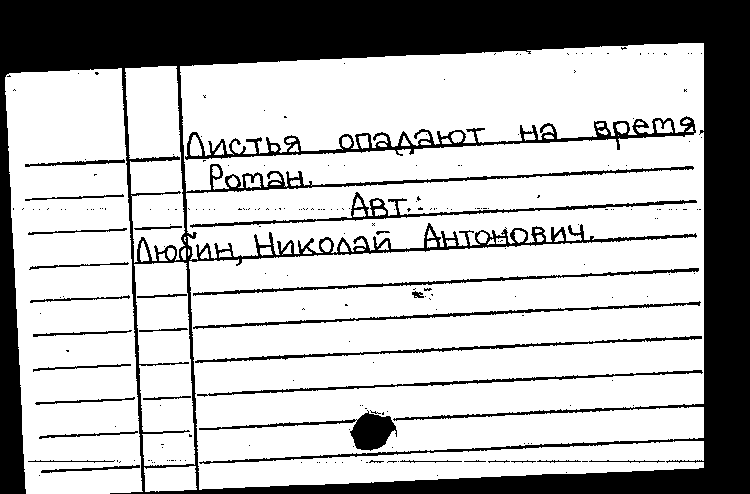 Листья опадают на время.
Роман.
Авт.:
Любин, Николай Антонович.